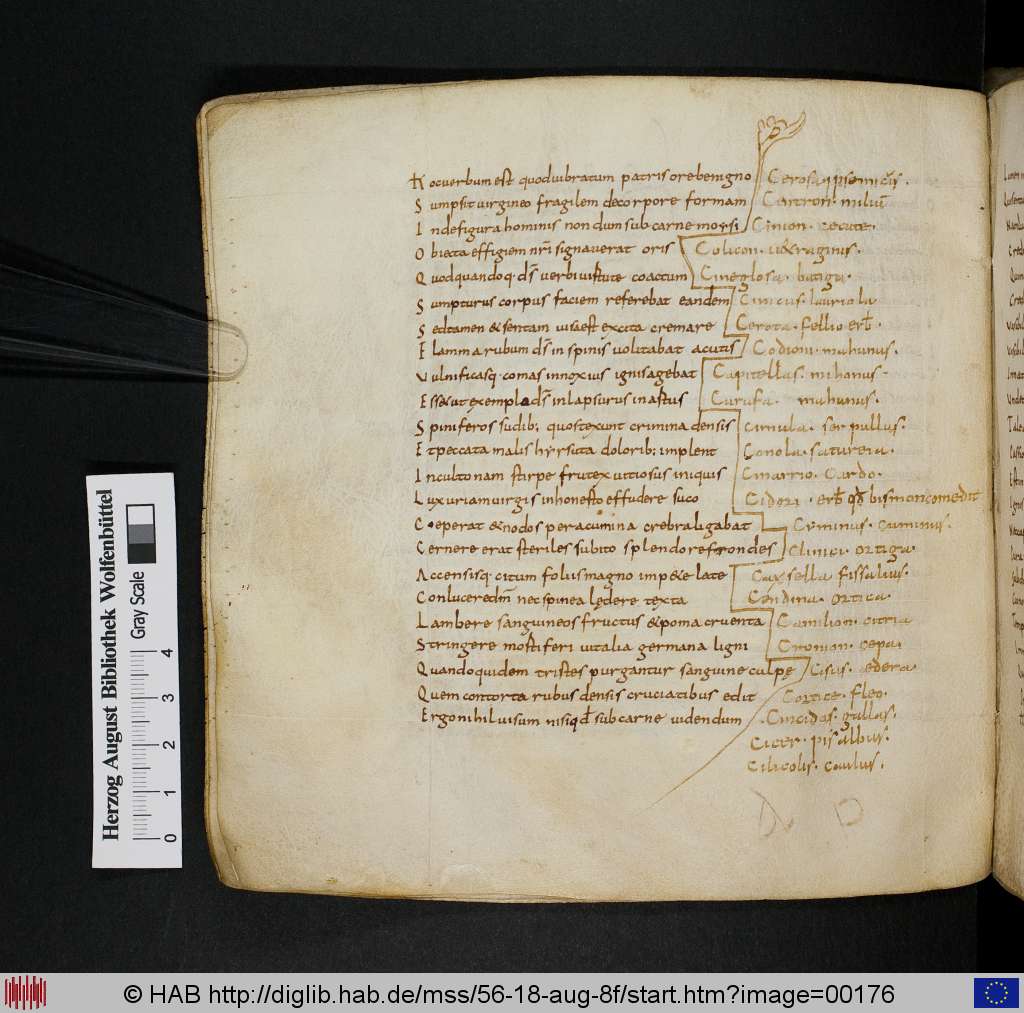 Hocverbum est quod vibratum patris ore benigno
Sumpsit virgineo fragilem decorpore formam
Indefigura hominis nondum sub carne morsi
Obiecta effigiem nr̄i signaverat oris
Quod quandoq. dš verbi virtute coactum
Sumpturus corpus faciem referebat eandem
Sed tamen & sentam visa est excita cremare
Flamma rubum dš in spinis volitabat acutis
Vulnificasq. comas innoxius ignis agebat
Ess& ut exempla dš inlapsurus in artus
Spiniferos sudib; quos texunt crimina densis
Et peccata malis hyrsuta dolorib; implent
Inculto nam stirpe frutex vitiosus iniquis
Luxuriam virgis inhonesto effudere suco
Coeperat & nodos peracumina crebra ligabat
Cernere erat steriles subito splendore frondes
Accensisq. citum foliis magno imp&e late
Conlucere dm̄ nec spinea lędere texta
Lambere sanguineos fructus & poma cruenta
Stringere mostiferi vitalia germana ligni
Quandoquidem tristes purgantur sanguine culpe
Quem contorta rubus densis cruciatibus edit
Ergo nihil visum nisi qđ sub carne videndum
Cartron. miliū
Cimon. cecute.
Colicon. u&raginis.
Cineglosa. batiga.
Cimcus. lauriola
Cerota. fellio erb̄.
Codioni. mahunus.
Capitellas. mihonus.
Curufa. mahunis.
Cimula. serpullus.
Conola. satureia.
Cmarrio. Cardo.
Ciminus. cuminus.
Clinici. ortiga.
Caxsella fissalius.
Cendina. ortica.
Camilion. citria
Cromon. cepa.
Cisus. edera
Cortice. fleo.
Cincidas. gallas.
Cicer. pisalbus.
Cilicolis. caulus.
Herzog August Bibliothek Wolfenbüttel
Gray Scale
0 1 2 3 4
© HAB http://diglib.hab.de/mss/56-18-aug-8f/start.htm?image=00176